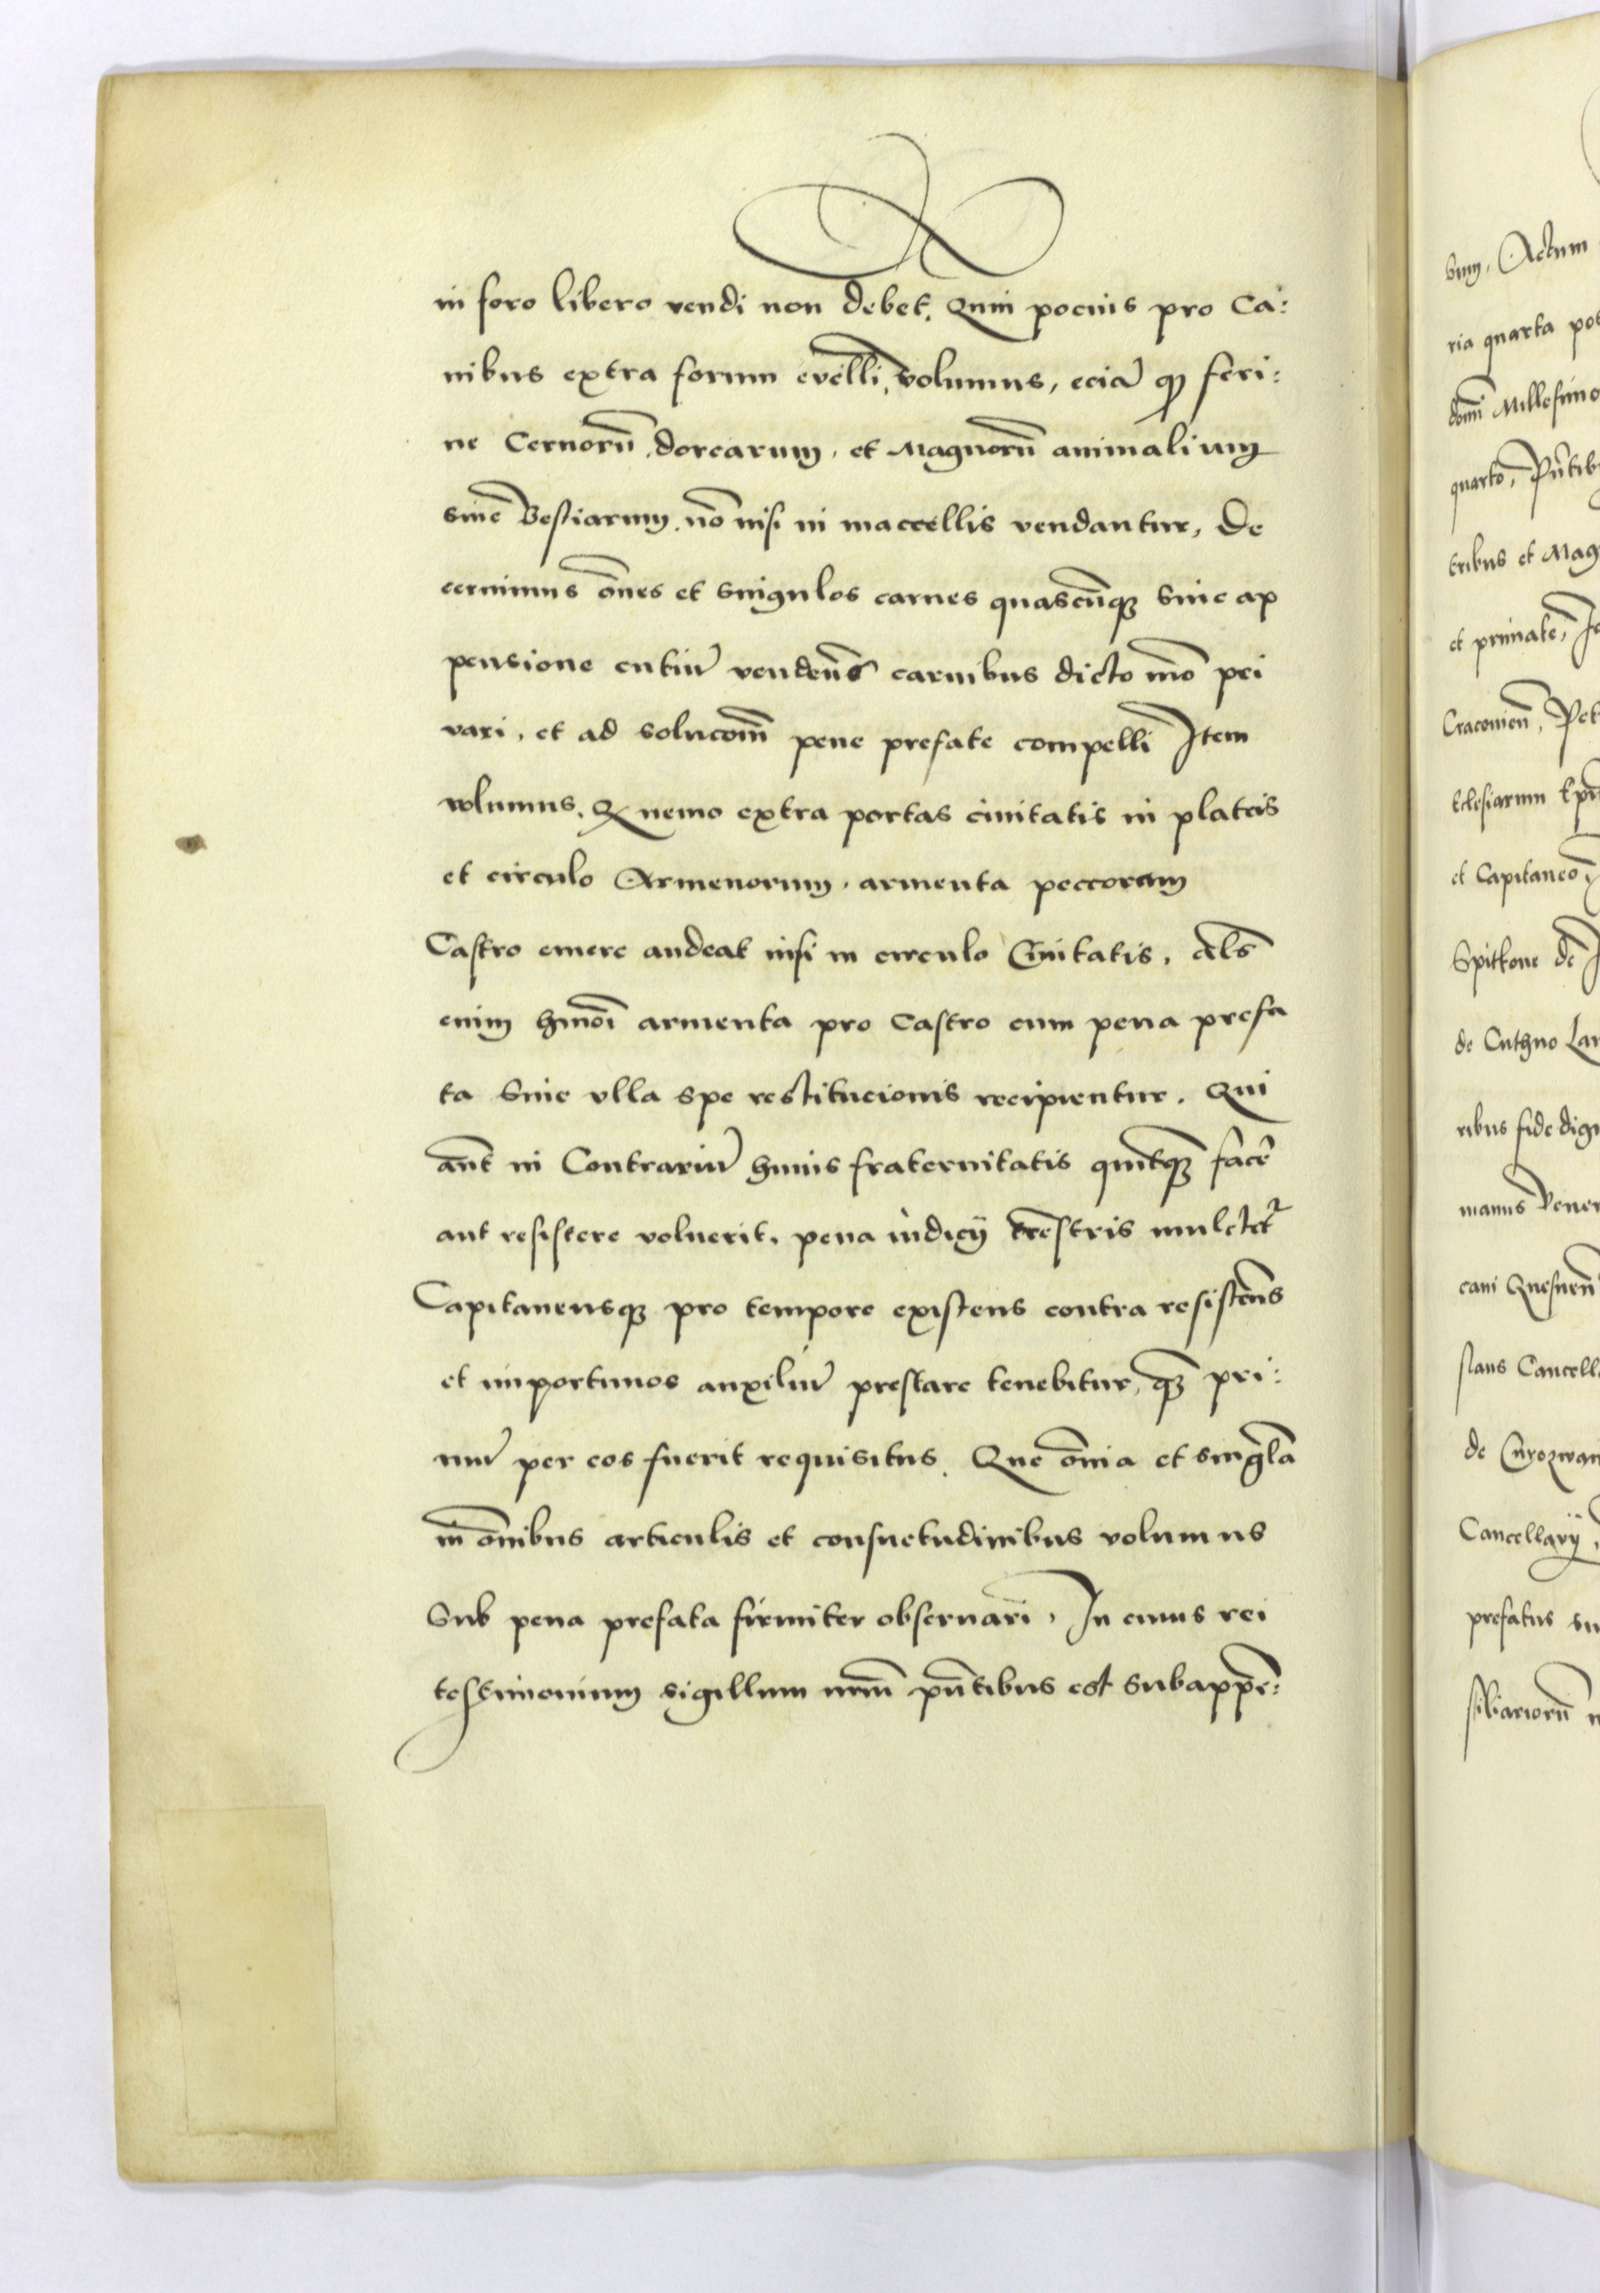 in foro libero vendi non debet. Quin pocius pro Ca:
nibus extra forum evelli, volumus, eciā qꝫ feri:
ne Ceruorū, dorcarum, et Magnorū animalium
siue Bestiarum. nō nisi in maccellis vendantur, De
cernimus ōnes et singulos carnes quascūqꝫ sine ap
pensione entiū vendēns carnibus dicto mō pri
vari, et ad solucōnē pene prefate compelli Item
volumus. Qꝫ nemo extra portas ciuitatis in plateis
et circulo Armenorum, armenta peccorum
Castro emere audeat nisi in circulo Ciuitatis. Als
enim hmōi armenta pro Castro cum pena prefa
ta Sine vlla spe restitucionis recipientur. Qui
aūt in Contrariū huius fraternitatis quitqꝫ facē
aut resistere voluerit. pena iudicij trēstris mulctetr
Capitaneusqꝫ pro tempore existens contra resistēns
et importunos auxiliū prestare tenebitur, qꝫ pri:
mū per eos fuerit requisitus. Que ōmia et singla
in ōmibus articulis et consuetudinibus volumus
Sub pena prefata firmiter obseruari, In cuius rei
testimonium sigillum nrūm pn̄tibus est Subappē:
bim, Actum
ria quarta pos
domī Millesimo
quarto, Pn̄tib
tribus et Mag
et primate, Jo
Cracouien̄, Pet
cclesiarum Epī
et Capitaneo,
Spitkone de J
de Cuthno Lan
ribus fide dign
manus Vener
cani Gnesnen̄
slaus Cancell
de Cūrozwan
Cancellarij,
prefatus su
siliariorū n